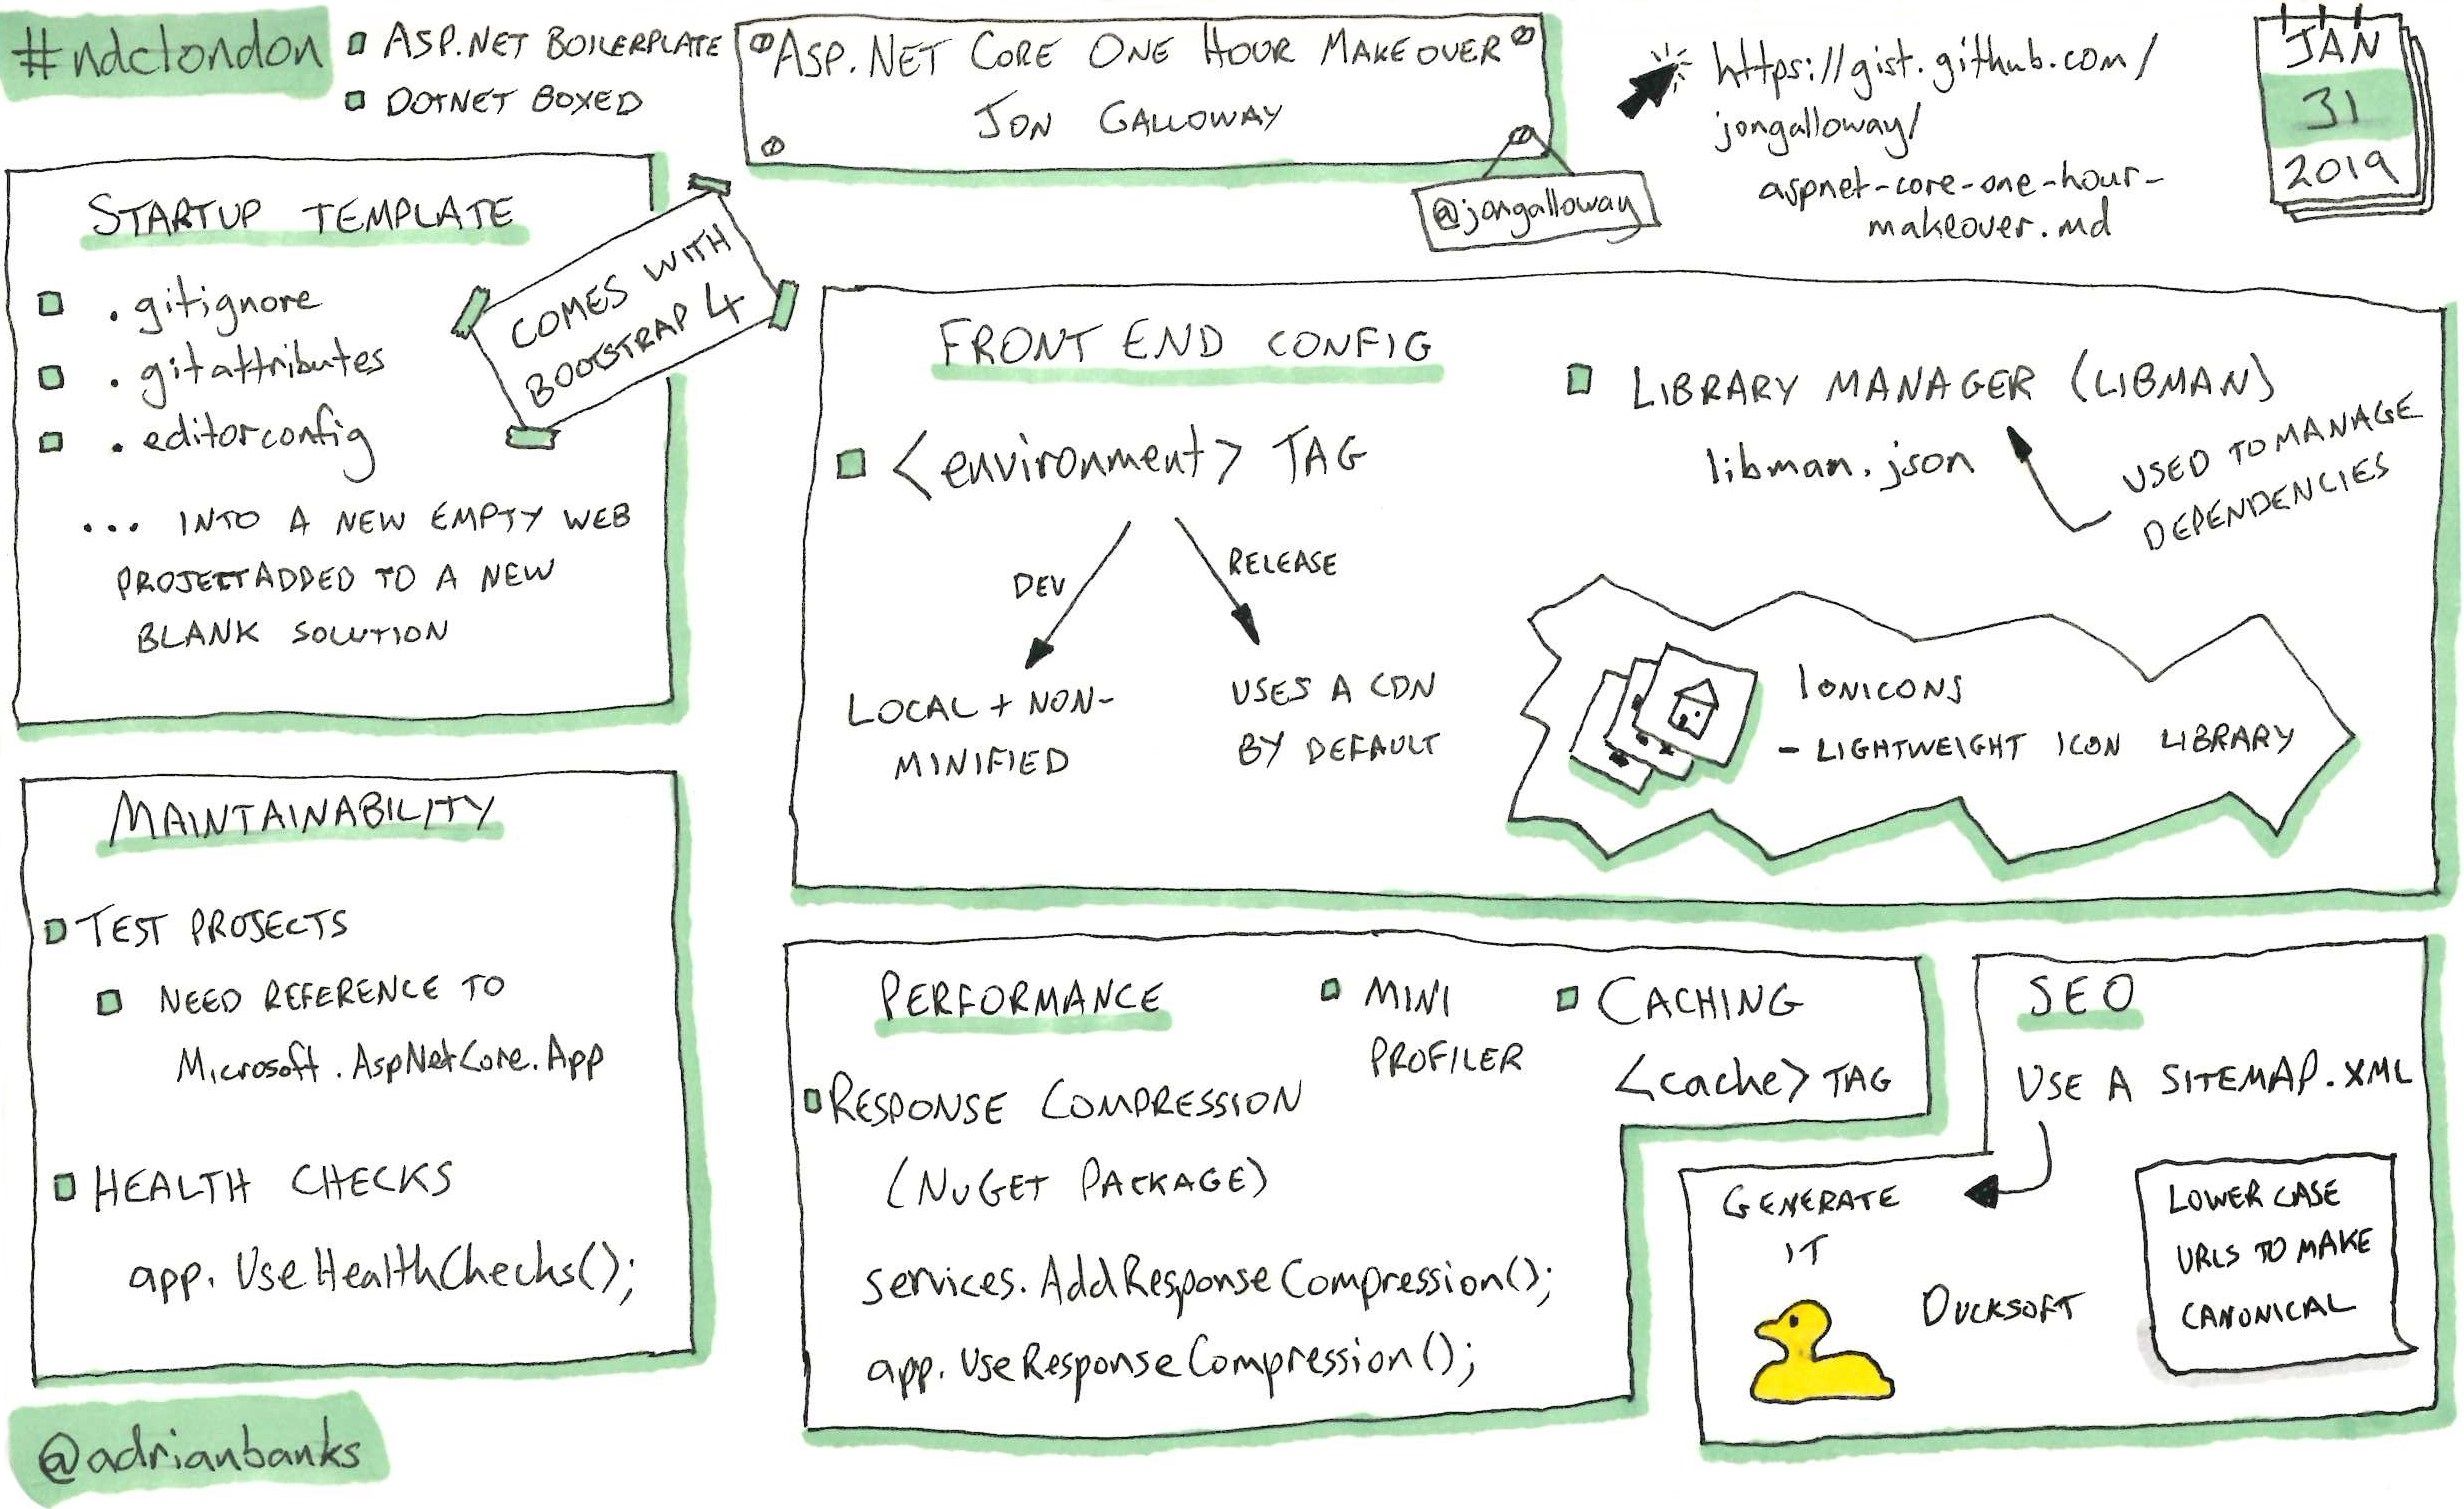 #ndclondon
ASP.NET BOILERPLATE
DOTNET BOXED
ASP.NET CORE ONE HOUR MAKEOVER
JON GALLOWAY
@jongalloway
https://gist.github.com/
jongalloway/
aspnet-core-one-hour-
makeover.md
JAN
31
2019
STARTUP TEMPLATE
.gitignore
.gitattributes
.editorconfig
... INTO A NEW EMPTY WEB
PROJECT ADDED TO A NEW
BLANK SOLUTION
COMES WITH
BOOTSTRAP 4
FRONT END CONFIG
<environment> TAG
DEV
RELEASE
LOCAL + NON-
MINIFIED
USES A CDN
BY DEFAULT
LIBRARY MANAGER (LIBMAN)
libman.json
USED TO MANAGE
DEPENDENCIES
IONICONS
- LIGHTWEIGHT ICON LIBRARY
MAINTAINABILITY
TEST PROJECTS
NEED REFERENCE TO
Microsoft.AspNetCore.App
HEALTH CHECKS
app.UseHealthChecks();
PERFORMANCE
MINI
PROFILER
CACHING
<cache> TAG
RESPONSE COMPRESSION
(NUGET PACKAGE)
services.AddResponseCompression();
app.UseResponseCompression();
SEO
USE A SITEMAP.XML
GENERATE
IT
DUCKSOFT
LOWER CASE
URLS TO MAKE
CANONICAL
@adrianbanks